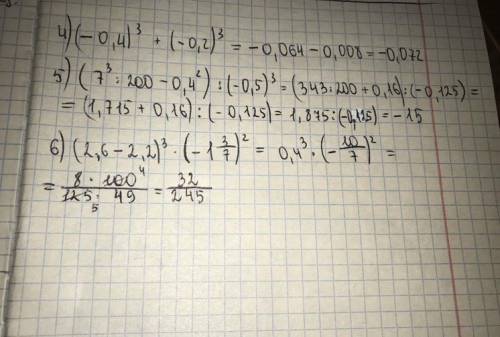 4) (-0,4)³ + (-0,2)³ = -0,064 - 0,008 = -0,072
5) (7³ : 200 - 0,4²) : (-0,5)³ = (343 : 200 + 0,16) : (-0,125) =
= (1,715 + 0,16) : (-0,125) = 1,875 : (-0,125) = -15
6) (2,6 - 2,2)³ · (-1 3/7)² = 0,4³ · (-10/7)² =
= 8 · 100 4 / 125 5 · 49 = 32/245